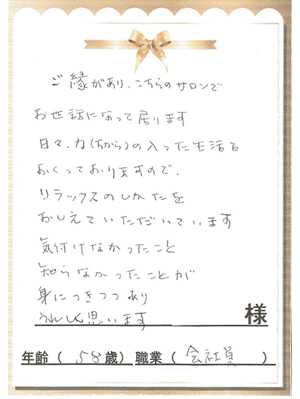 ご縁があり、こちらのサロンで
お世話になって居ります
日々、力(ちから)の入った生活を
おくっておりますので、
リラックスのしかたを
おしえていただいています
気付けなかったこと
知らなかったことが
身につきつつあり
うれしく思います
様
年齢(58歳)職業(会社員)